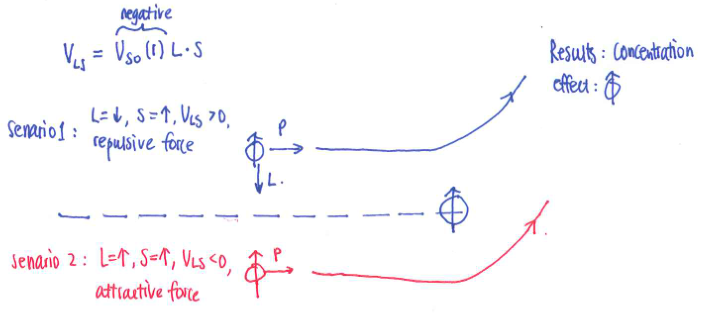 negative
V_LS = V_SO (r) L · S
Results : Concentration
effect :
Senario 1 : L=↓, S=↑, V_LS >0,
repulsive force
P
L.
Senario 2 : L=↑, S=↑, V_LS <0,
attractive force
P